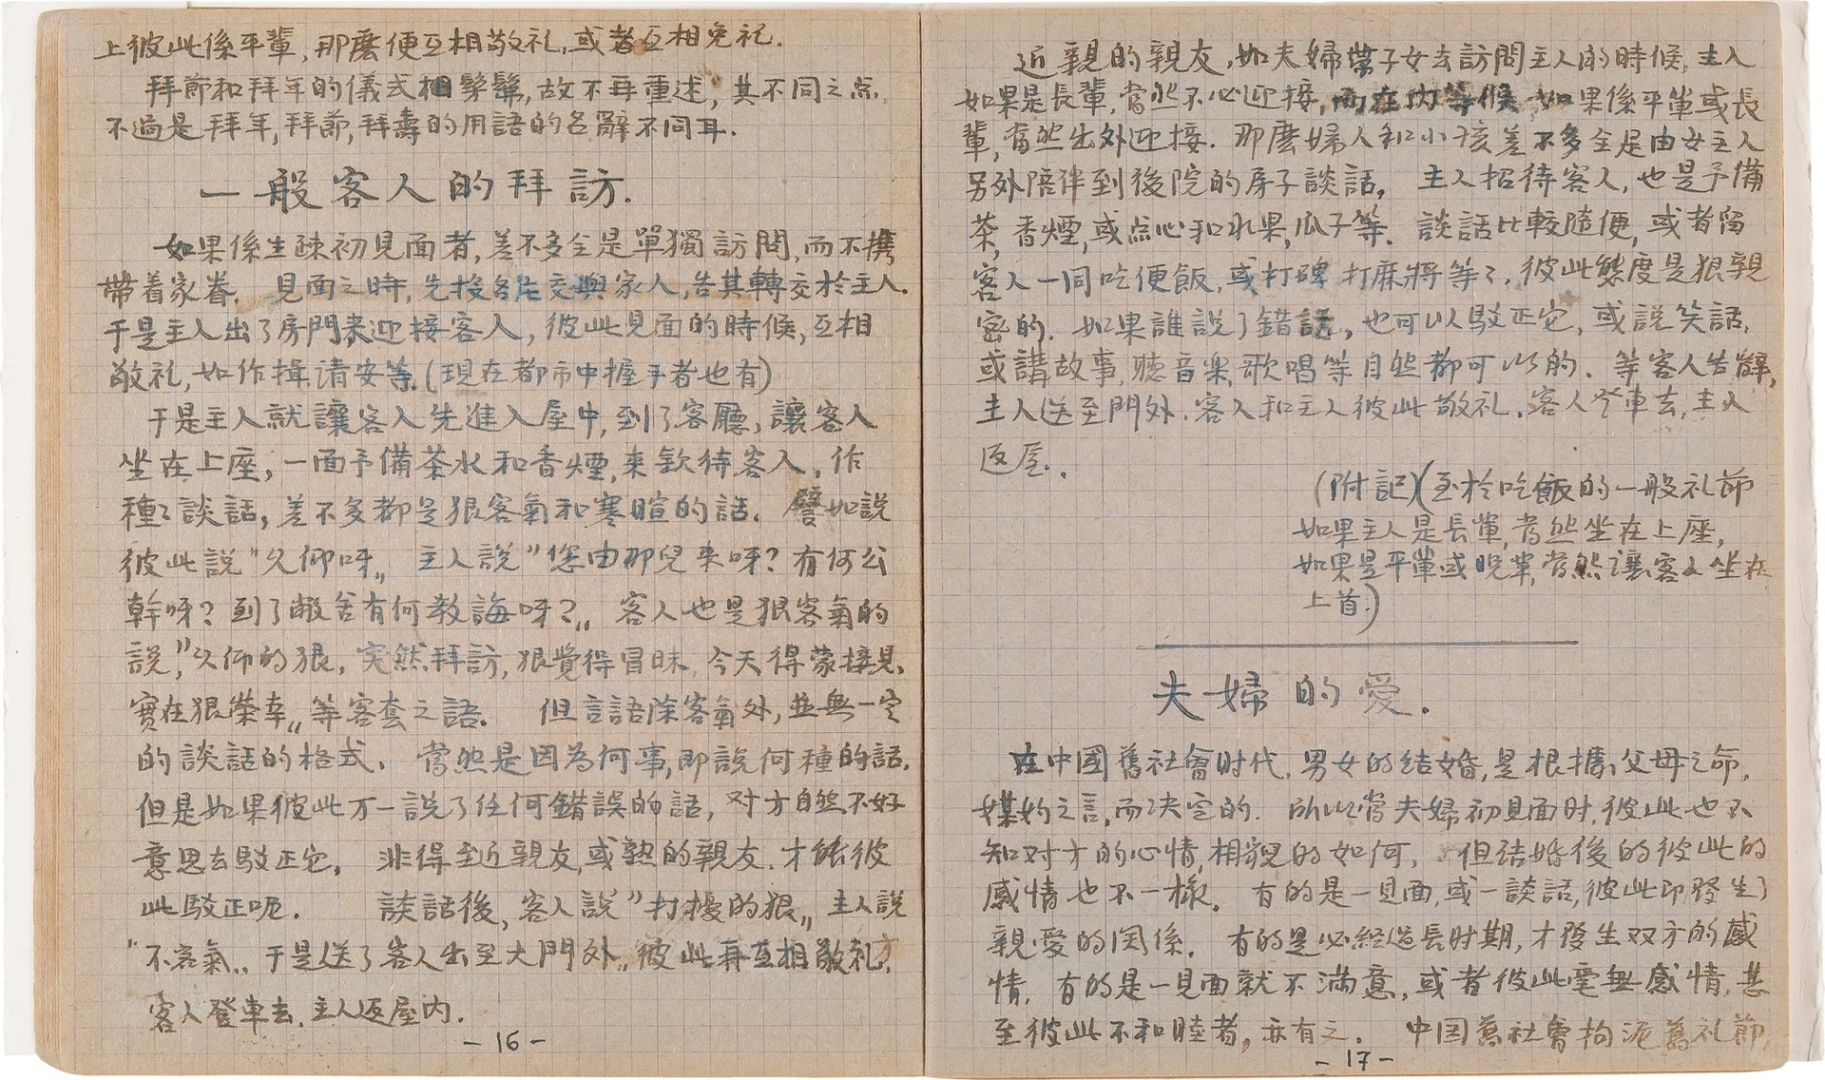 上彼此係平輩，那麼便互相敬礼，或者互相免礼．
拜節和拜年的儀式相髣髴，故不再重述，其不同之点，
不過是拜年，拜節，拜壽的用語的名辭不同耳．
一般客人的拜訪．
如果係生疎初見面者，差不多全是單獨訪問，而不携
帶着家眷．見面之時，先投名片交與家人，告其轉交於主人．
于是主人出了房門来迎接客人，彼此見面的時候，互相
敬礼，如作揖请安等．(現在都市中握手者也有)
于是主人就讓客人先進入屋中，到了客廳，讓客人
坐在上座，一面予備茶水和香煙，来欵待客人，作
種々談話，差不多都是狠客氣和寒暄的話．譬如說
彼此說"久仰呀〟主人說"您由那兒来呀？有何公
幹呀？到了敝舍有何教誨呀？〟客人也是狠客氣的
說，"久仰的狠，突然拜訪，狠覺得冒昧，今天得蒙接見，
實在狠榮幸〟等客套之語．但言語除客氣外，並無一定
的談話的格式．當然是因為何事，即說何種的話．
但是如果彼此万一說了任何錯誤的話，对方自然不好
意思去駁正它．非得至近親友，或熟的親友．才能彼
此駁正呢．談話後，客人說"打擾的狠〟主人說
"不客氣〟于是送了客人出至大門外，彼此再互相敬礼，
客人登車去．主人返屋内．
-16-
近親的親友，如夫婦帶子女去訪問主人的時候，主人
如果是長輩，當然不必迎接，而在内等候．如果係平輩或長
輩，當然出外迎接．那麼婦人和小孩差不多全是由女主人
另外陪伴到後院的房子談話，主人招待客人，也是予備
茶，香煙，或点心和水果，瓜子等．談話比較隨便，或者留
客人一同吃便飯，或打碑打麻將等々．彼此態度是狠親
密的．如果誰說了錯話，也可以駁正它，或說笑話，
或講故事，聽音樂，歌唱等自然都可以的．等客人告辭，
主人送至門外．客人和主人彼此敬礼．客人登車去，主人
返屋．．
(附記)(至於吃飯的一般礼節
如果主人是長輩，當然坐在上座，
如果是平輩或晚輩，當然讓客人坐在
上首．)
夫婦的愛．
在中國舊社會时代，男女的结婚，是根據父母之命，
媒妁之言，而决定的．所以當夫婦初見面时，彼此也不
知对方的心情，相貌的如何，但结婚後的彼此的
感情也不一樣．有的是一見面，或一談話，彼此即發生了
親愛的関係．有的是必经過長时期，才發生双方的感
情．有的是一見面就不滿意，或者彼此毫無感情，甚
至彼此不和睦者，亦有之．中国舊社會拘泥舊礼節，
-17-